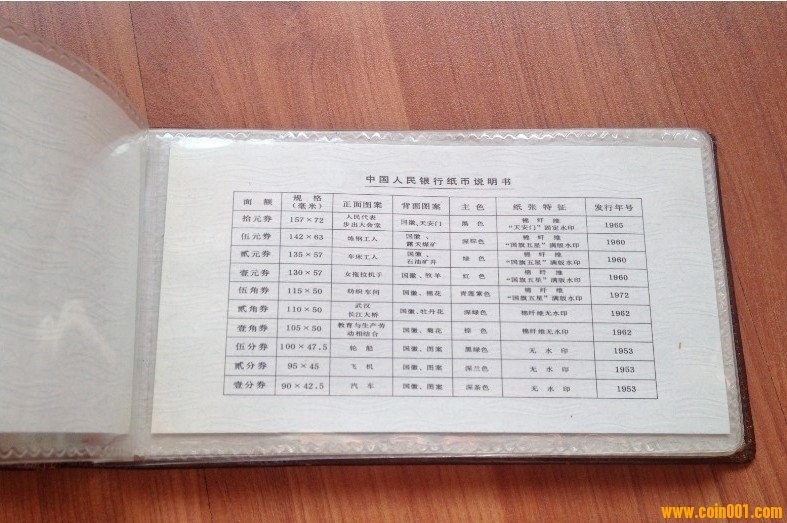 中国人民银行纸币说明书
面额 规格(毫米) 正面图案 背面图案 主色 纸张特征 发行年号
拾元券 157×72 人民代表步出大会堂 国徽、天安门 黑色 棉纤维“天安门”固定水印 1965
伍元券 142×63 炼钢工人 国徽、露天煤矿 深棕色 棉纤维“国旗五星”满版水印 1960
贰元券 135×57 车床工人 国徽、石油矿井 绿色 棉纤维“国旗五星”满版水印 1960
壹元券 130×57 女拖拉机手 国徽、牧羊 红色 棉纤维“国旗五星”满版水印 1960
伍角券 115×50 纺织车间 国徽、棉花 青莲紫色 棉纤维“国旗五星”满版水印 1972
贰角券 110×50 武汉长江大桥 国徽、牡丹花 深绿色 棉纤维无水印 1962
壹角券 105×50 教育与生产劳动相结合 国徽、菊花 棕色 棉纤维无水印 1962
伍分券 100×47.5 轮船 国徽、图案 黑绿色 无水印 1953
贰分券 95×45 飞机 国徽、图案 深兰色 无水印 1953
壹分券 90×42.5 汽车 国徽、图案 深茶色 无水印 1953
www.coin001.com